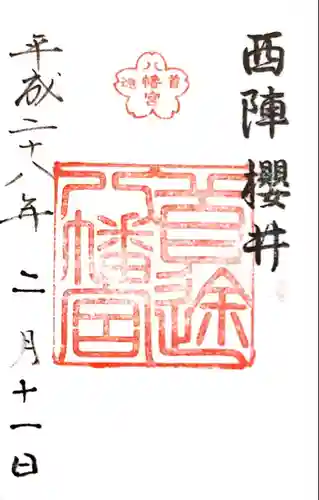 西陣櫻井
八幡宮
首途
首途
八幡宮
平成二十八年二月十一日